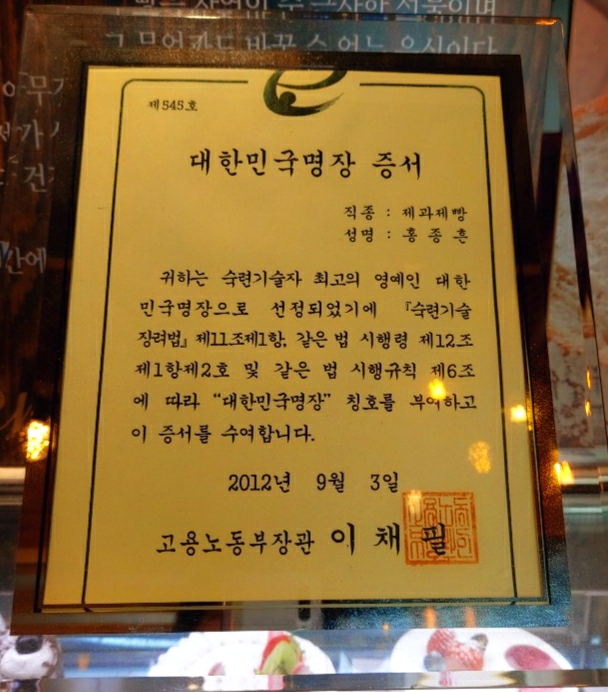 그 무엇과도 바꿀 수 없는 음식이다
제545호
대한민국명장 증서
직종 : 제과제빵
성명 : 홍 종 흔
귀하는 숙련기술자 최고의 영예인 대한
민국명장으로 선정되었기에 『숙련기술
장려법』 제11조제1항, 같은 법 시행령 제12조
제1항제2호 및 같은 법 시행규칙 제6조
에 따라 “대한민국명장” 칭호를 부여하고
이 증서를 수여합니다.
2012년 9월 3일
고용노동부장관 이 채 필